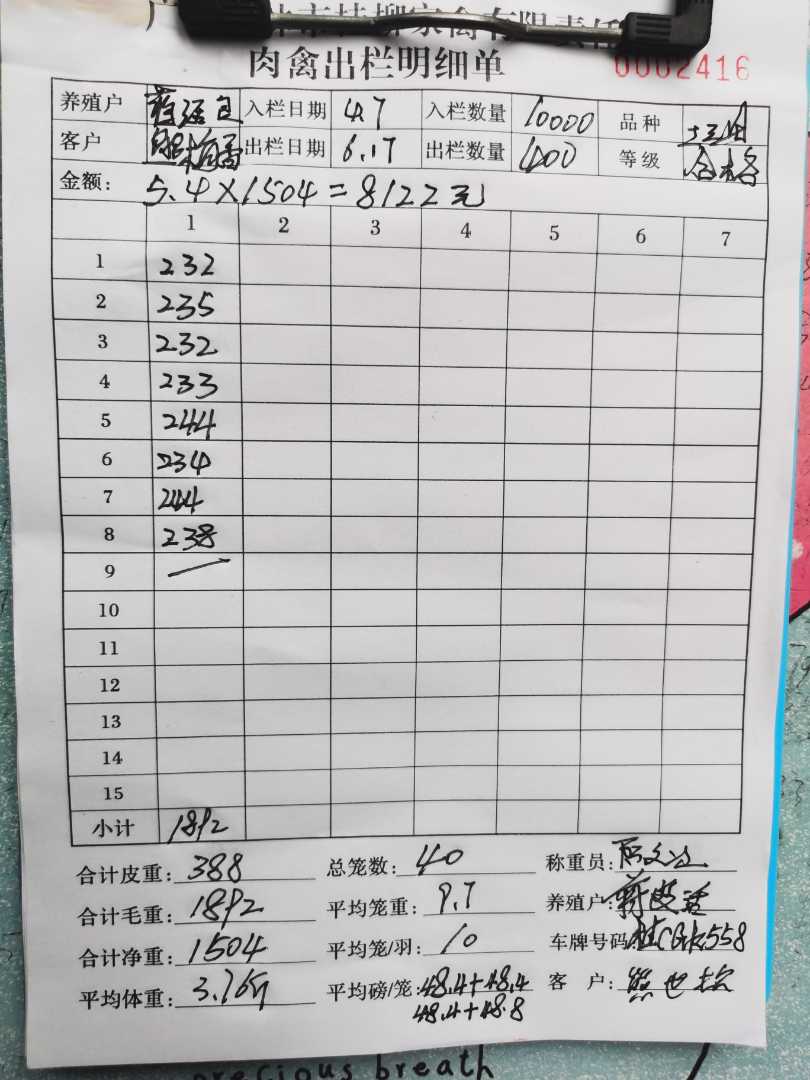 市桂柳家禽有限责任
肉禽出栏明细单
0002416
养殖户 入栏日期 4.7 入栏数量 10000 品种
客户 出栏日期 6.17 出栏数量 400 等级 合格
金额: 5.4×1504=8122元
1 2 3 4 5 6 7
1 232
2 235
3 232
4 233
5 244
6 234
7 244
8 238
9 —
10
11
12
13
14
15
小计 1892
合计皮重: 388 总笼数: 40 称重员:
合计毛重: 1892 平均笼重: 9.7 养殖户:
合计净重: 1504 平均笼/羽: 10 车牌号码
平均体重: 3.76 平均磅/笼: 48.4+48.4 客户:
48.4+48.8
precious breath